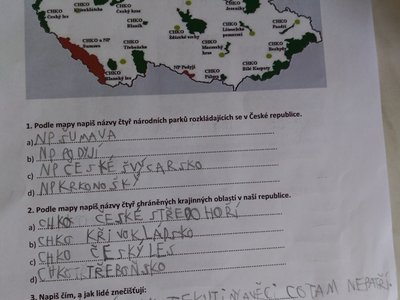 CHKO Český les
CHKO Křivoklátsko
CHKO Český kras
CHKO a NP Šumava
CHKO Blanský les
CHKO Třeboňsko
CHKO Žďárské vrchy
CHKO Moravský kras
NP Podyjí
CHKO Pálava
CHKO Jeseníky
CHKO Litovelské Pomoraví
CHKO Poodří
CHKO Beskydy
CHKO Bílé Karpaty
1. Podle mapy napiš názvy čtyř národních parků rozkládajících se v České republice.
a) NP ŠUMAVA
b) NP PODYJÍ
c) NP ČESKÉ ŠVÝCARSKO
d) NP KRKONOŠKÝ
2. Podle mapy napiš názvy čtyř chráněných krajinných oblastí v naší republice.
a) CHKO ČESKÉ STŘEDOHOŘÍ
b) CHKO KŘIVOKLADSKO
c) CHKO ČESKÝ LES
d) CHKO TŘEBOŇSKO
3. Napiš čím, a jak lidé znečišťují:
VĚCI CO TAM NEPATŘÍ.